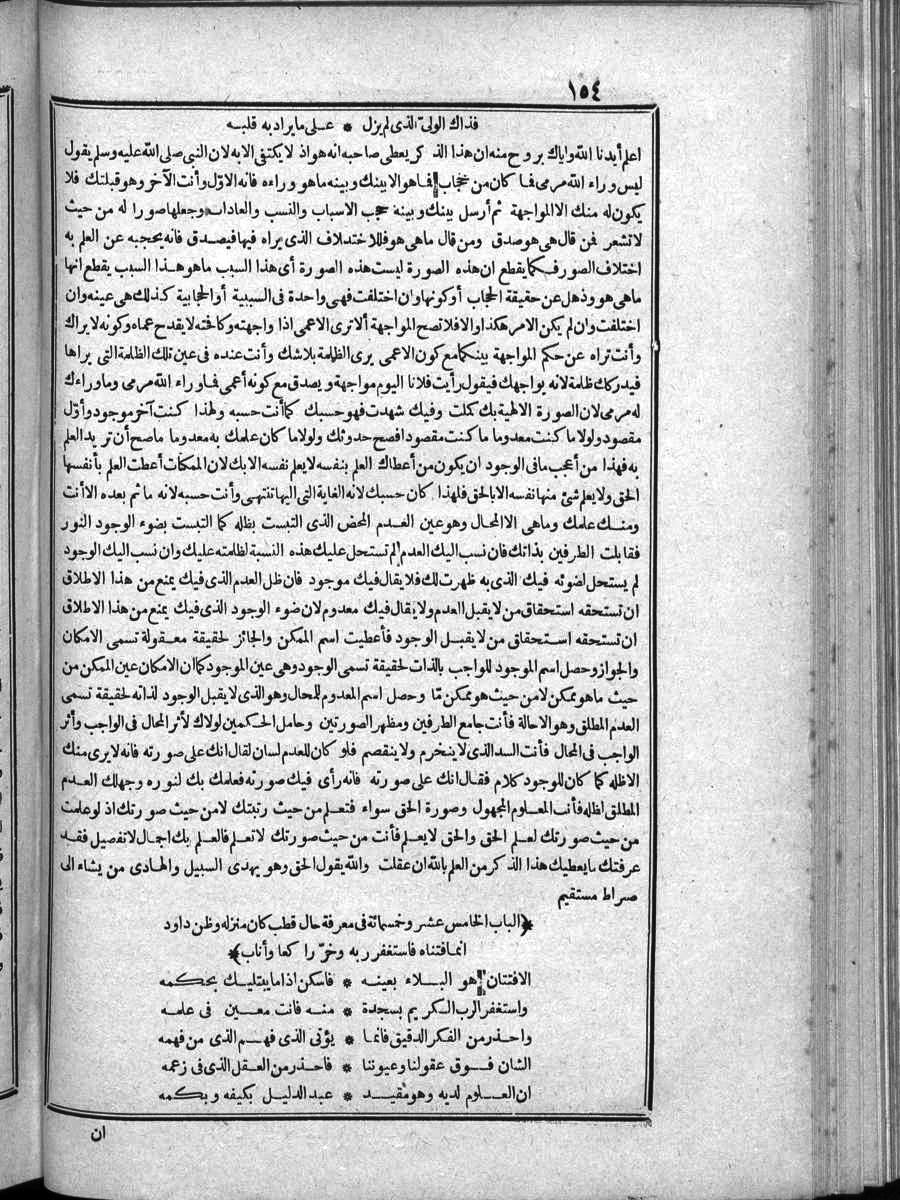 ١٥٤
فذاك الولي الذي لم يزل * على ما يراد به قلبه
اعلم أيدنا الله واياك بروح منه ان هذا الذكر يعطى صاحبه انه هو اذ لا يكتفى الا به لان النبي صلى الله عليه وسلم يقول
ليس وراء الله مرمى فما كان من حجاب فما هو الا بينك وبينه ما هو وراءه فانه الاول وأنت الآخر وهو قبلتك فلا
يكون له منك الا المواجهة ثم أرسل بينك وبينه حجب الاسباب والنسب والعادات وجعلها صورا له من حيث
لا تشعر فمن قال هي هو صدق ومن قال ما هي هو فللاختلاف الذي يراه فيها فيصدق فانه يحجبه عن العلم به
اختلاف الصور فكما يقطع ان هذه الصورة ليست هذه الصورة أي هذا السبب ما هو هذا السبب يقطع انها
ما هي هو وذهل عن حقيقة الحجاب أو كونها وان اختلفت فهي واحدة في السببية أو الحجابية كذلك هي عينه وان
اختلفت وان لم يكن الامر هكذا والا فلا تصح المواجهة ألا ترى الاعمى اذا واجهته وكافحته لا يقدح عماه وكونه لا يراك
وأنت تراه عن حكم المواجهة بينكما مع كون الاعمى يرى الظلمة بلا شك وأنت عنده في عين تلك الظلمة التي يراها
فيدركك ظلمة لانه يواجهك فيقول رأيت فلانا اليوم مواجهة ويصدق مع كونه أعمى فما وراء الله مرمى وما وراءك
له مرمى لان الصورة الالهية بك كملت وفيك شهدت فهو حسبك كما أنت حسبه ولهذا كنت آخر موجود وأول
مقصود ولولا ما كنت معدوما ما كنت مقصودا فصح حدوثك ولولا ما كان علمك به معدوما ما صح أن تريد العلم
به فهذا من أعجب ما في الوجود ان يكون من أعطاك العلم بنفسه لا يعلم نفسه الا بك لان الممكنات أعطت العلم بأنفسها
الحق ولا يعلم شئ منها نفسه الا بالحق فلهذا كان حسبك لانه الغاية التي اليها تنتهى وأنت حسبه لانه ما ثم بعده الا أنت
ومنك علمك وما هي الا المحال وهو عين العدم المحض الذي التبست بظله كما التبست بضوء الوجود النور
فقابلت الطرفين بذاتك فان نسب اليك العدم لم تستحل عليك هذه النسبة لظلمته عليك وان نسب اليك الوجود
لم يستحل لضوئه فيك الذي به ظهرت لك فلا يقال فيك موجود فان ظل العدم الذي فيك يمنع من هذا الاطلاق
ان تستحقه استحقاق من لا يقبل العدم ولا يقال فيك معدوم لان ضوء الوجود الذي فيك يمنع من هذا الاطلاق
ان تستحقه استحقاق من لا يقبل الوجود فأعطيت اسم الممكن والجائز لحقيقة معقولة تسمى الامكان
والجواز وحصل اسم الموجود للواجب بالذات لحقيقة تسمى الوجود وهي عين الموجود كما ان الامكان عين الممكن من
حيث ما هو ممكن لا من حيث هو ممكن ما وحصل اسم المعدوم للمحال وهو الذي لا يقبل الوجود لذاته لحقيقة تسمى
العدم المطلق وهو الاحالة فأنت جامع الطرفين ومظهر الصورتين وحامل الحكمين لولاك لأثر المحال في الواجب وأثر
الواجب في المحال فأنت السد الذي لا ينخرم ولا ينقصم فلو كان للعدم لسان لقال انك على صورته فانه لا يرى منك
الا ظله كما كان للوجود كلام فقال انك على صورته فانه رأى فيك صورته فعلمك بك لنوره وجهلك العدم
المطلق لظله فأنت المعلوم المجهول وصورة الحق سواء فتعلم من حيث رتبتك لا من حيث صورتك اذ لو علمت
من حيث صورتك لعلم الحق والحق لا يعلم فأنت من حيث صورتك لا تعلم فالعلم بك اجمال لا تفصيل فقد
عرفتك ما يعطيك هذا الذكر من العلم بالله ان عقلت والله يقول الحق وهو يهدى السبيل والهادى من يشاء الى
صراط مستقيم
﴿الباب الخامس عشر وخمسمائة في معرفة حال قطب كان منزله وظن داود
انما فتناه فاستغفر ربه وخر راكعا وأناب﴾
الافتتان هو البلاء بعينه * فاسكن اذا ما يبتليك بحكمه
واستغفر الرب الكريم بسجدة * منه فانت معين في علمه
واحذر من الفكر الدقيق فانما * يؤتى الذي فهم الذي من فهمه
الشان فوق عقولنا وعيوننا * فاحذر من العقل الذي في زعمه
ان العلوم لديه وهو مقيد * عبد الدليل بكيفه وبكمه
ان